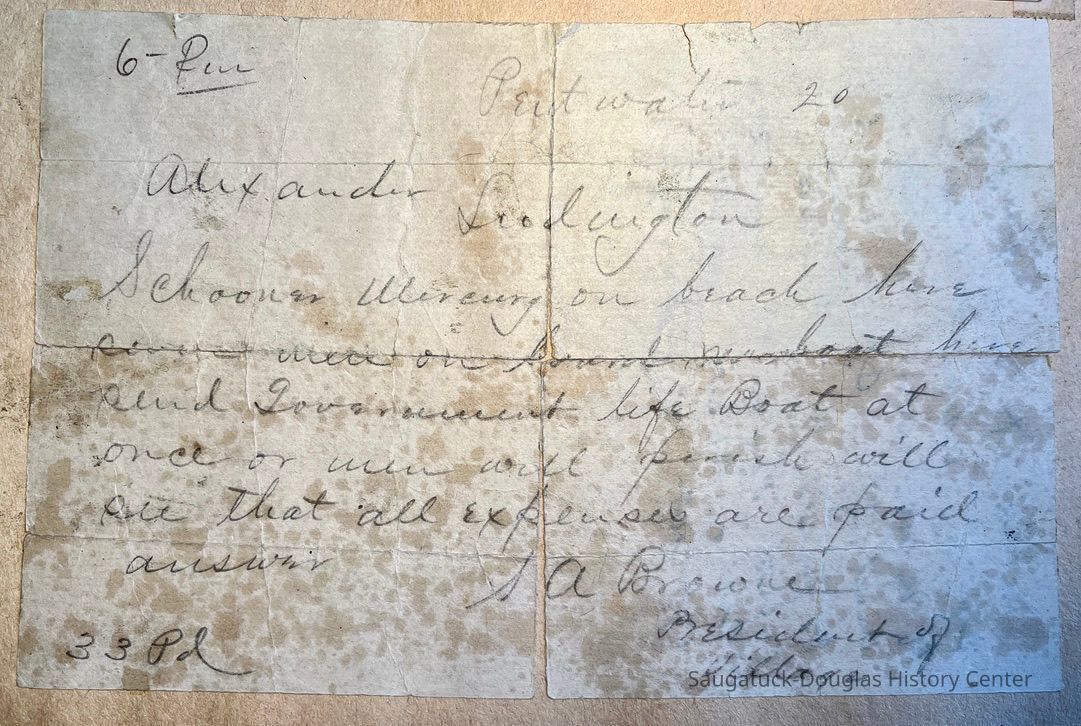 6- Pm
Pentwater 20
Alexander
Ludington
Schooner Mercury on beach here
seven men on board no boat here
send Government life Boat at
once or men will perish will
see that all expenses are paid
answer
S A Browne
President of
Village
33 Pd
Saugatuck-Douglas History Center